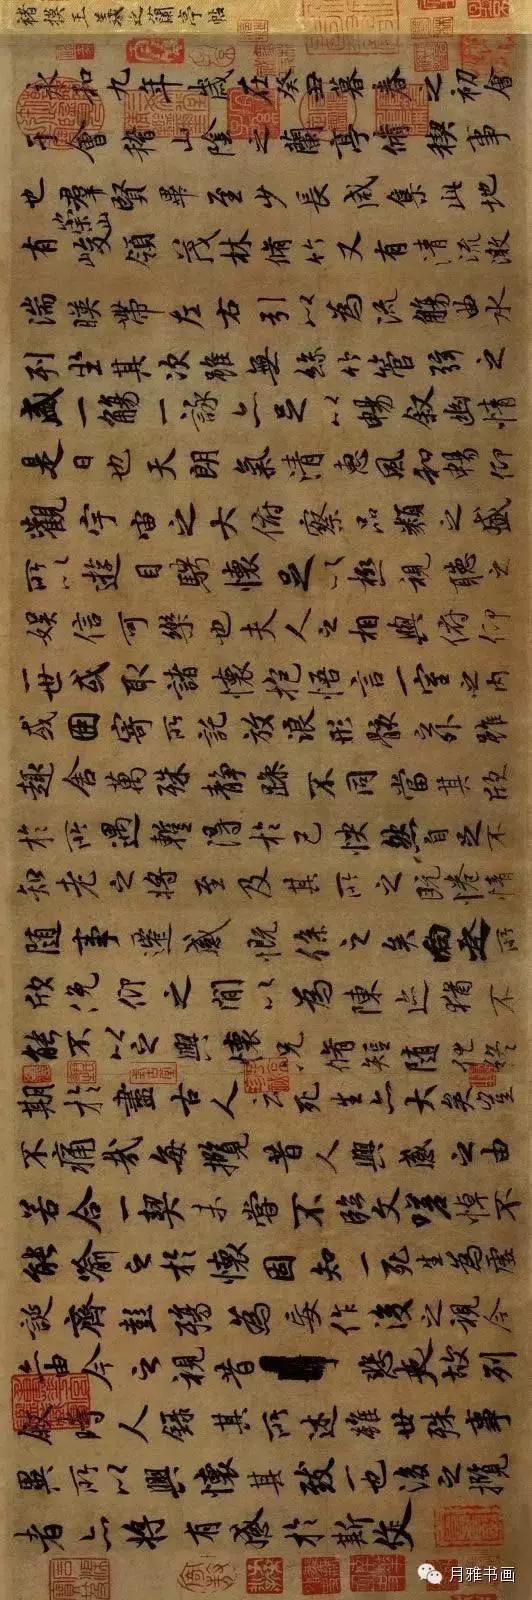 褚摸王羲之蘭亭帖
永和九年歲在癸丑暮春之初會
于會稽山陰之蘭亭脩稧事
也羣賢畢至少長咸集此地
有崇山峻領茂林脩竹又有清流激
湍暎帶左右引以為流觴曲水
列坐其次雖無絲竹管弦之
盛一觴一詠亦足以暢叙幽情
是日也天朗氣清惠風和暢仰
觀宇宙之大俯察品類之盛
所以遊目騁懷足以極視聽之
娛信可樂也夫人之相與俯仰
一世或取諸懷抱悟言一室之內
或因寄所託放浪形骸之外雖
趣舍萬殊靜躁不同當其欣
於所遇暫得於己怏然自足不
知老之將至及其所之既惓情
随事遷感慨係之矣向之所
欣俛仰之閒以為陳迹猶不
能不以之興懷況脩短随化終
期於盡古人云死生亦大矣豈
不痛哉每攬昔人興感之由
若合一契未嘗不臨文嗟悼不
能喻之於懷固知一死生為虛
誕齊彭殤為妄作後之視今
亦由今之視昔悲夫故列
叙時人錄其所述雖世殊事
異所以興懷其致一也後之攬
者亦將有感於斯文
月雅书画